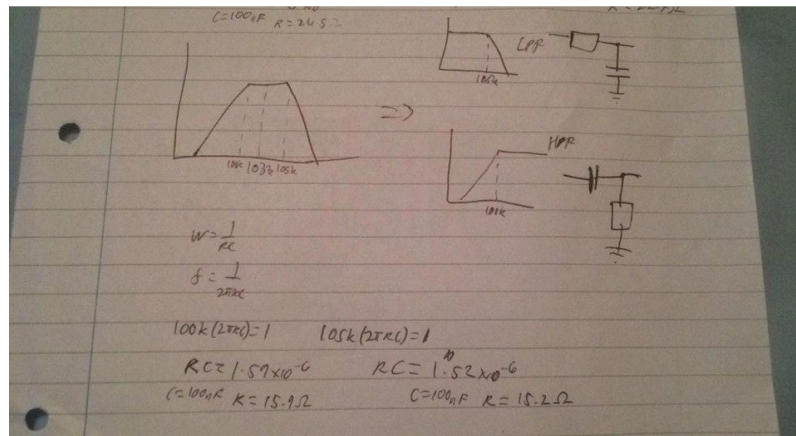 C=100nF R=24.5Ω
LPF
105k
101k 103k 105k
HPF
101k
W=1/RC
f=1/2πRC
100k(2πRC)=1 105k(2πRC)=1
RC=1.59x10⁻⁶ RC=1.52x10⁻⁶
C=100nF R=15.9Ω C=100nF R=15.2Ω